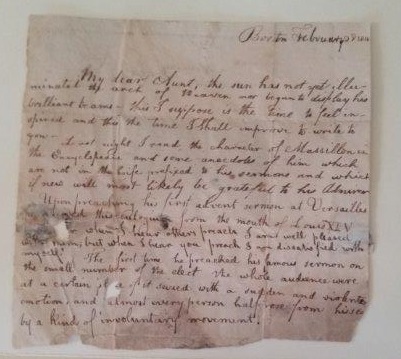 Boston February
My dear Aunt, the sun has not yet illu-
minated the arch of Heaven nor begun to display his
brilliant beams - this I suppose is the time to feel in-
spired and this the time I shall improve to write to
you -
Last night I read the character of Massillon in
the Encyclopedia and some anecdotes of him which
are not in the life prefixed to his sermons and which
if new will most likely be grateful to his Admirer
Upon preaching his first advent sermon at Versailles
this eulogium from the mouth of Louis XIV
when I hear others preach I am well pleased
with them, but when I hear you preach I am dissatisfied with
myself" The first time he preached his famous sermon on
the small number of the elect the whole audience were
at a certain seized with a sudden and violent
emotion and almost every person half rose from his seat
by a kind of involuntary movement.